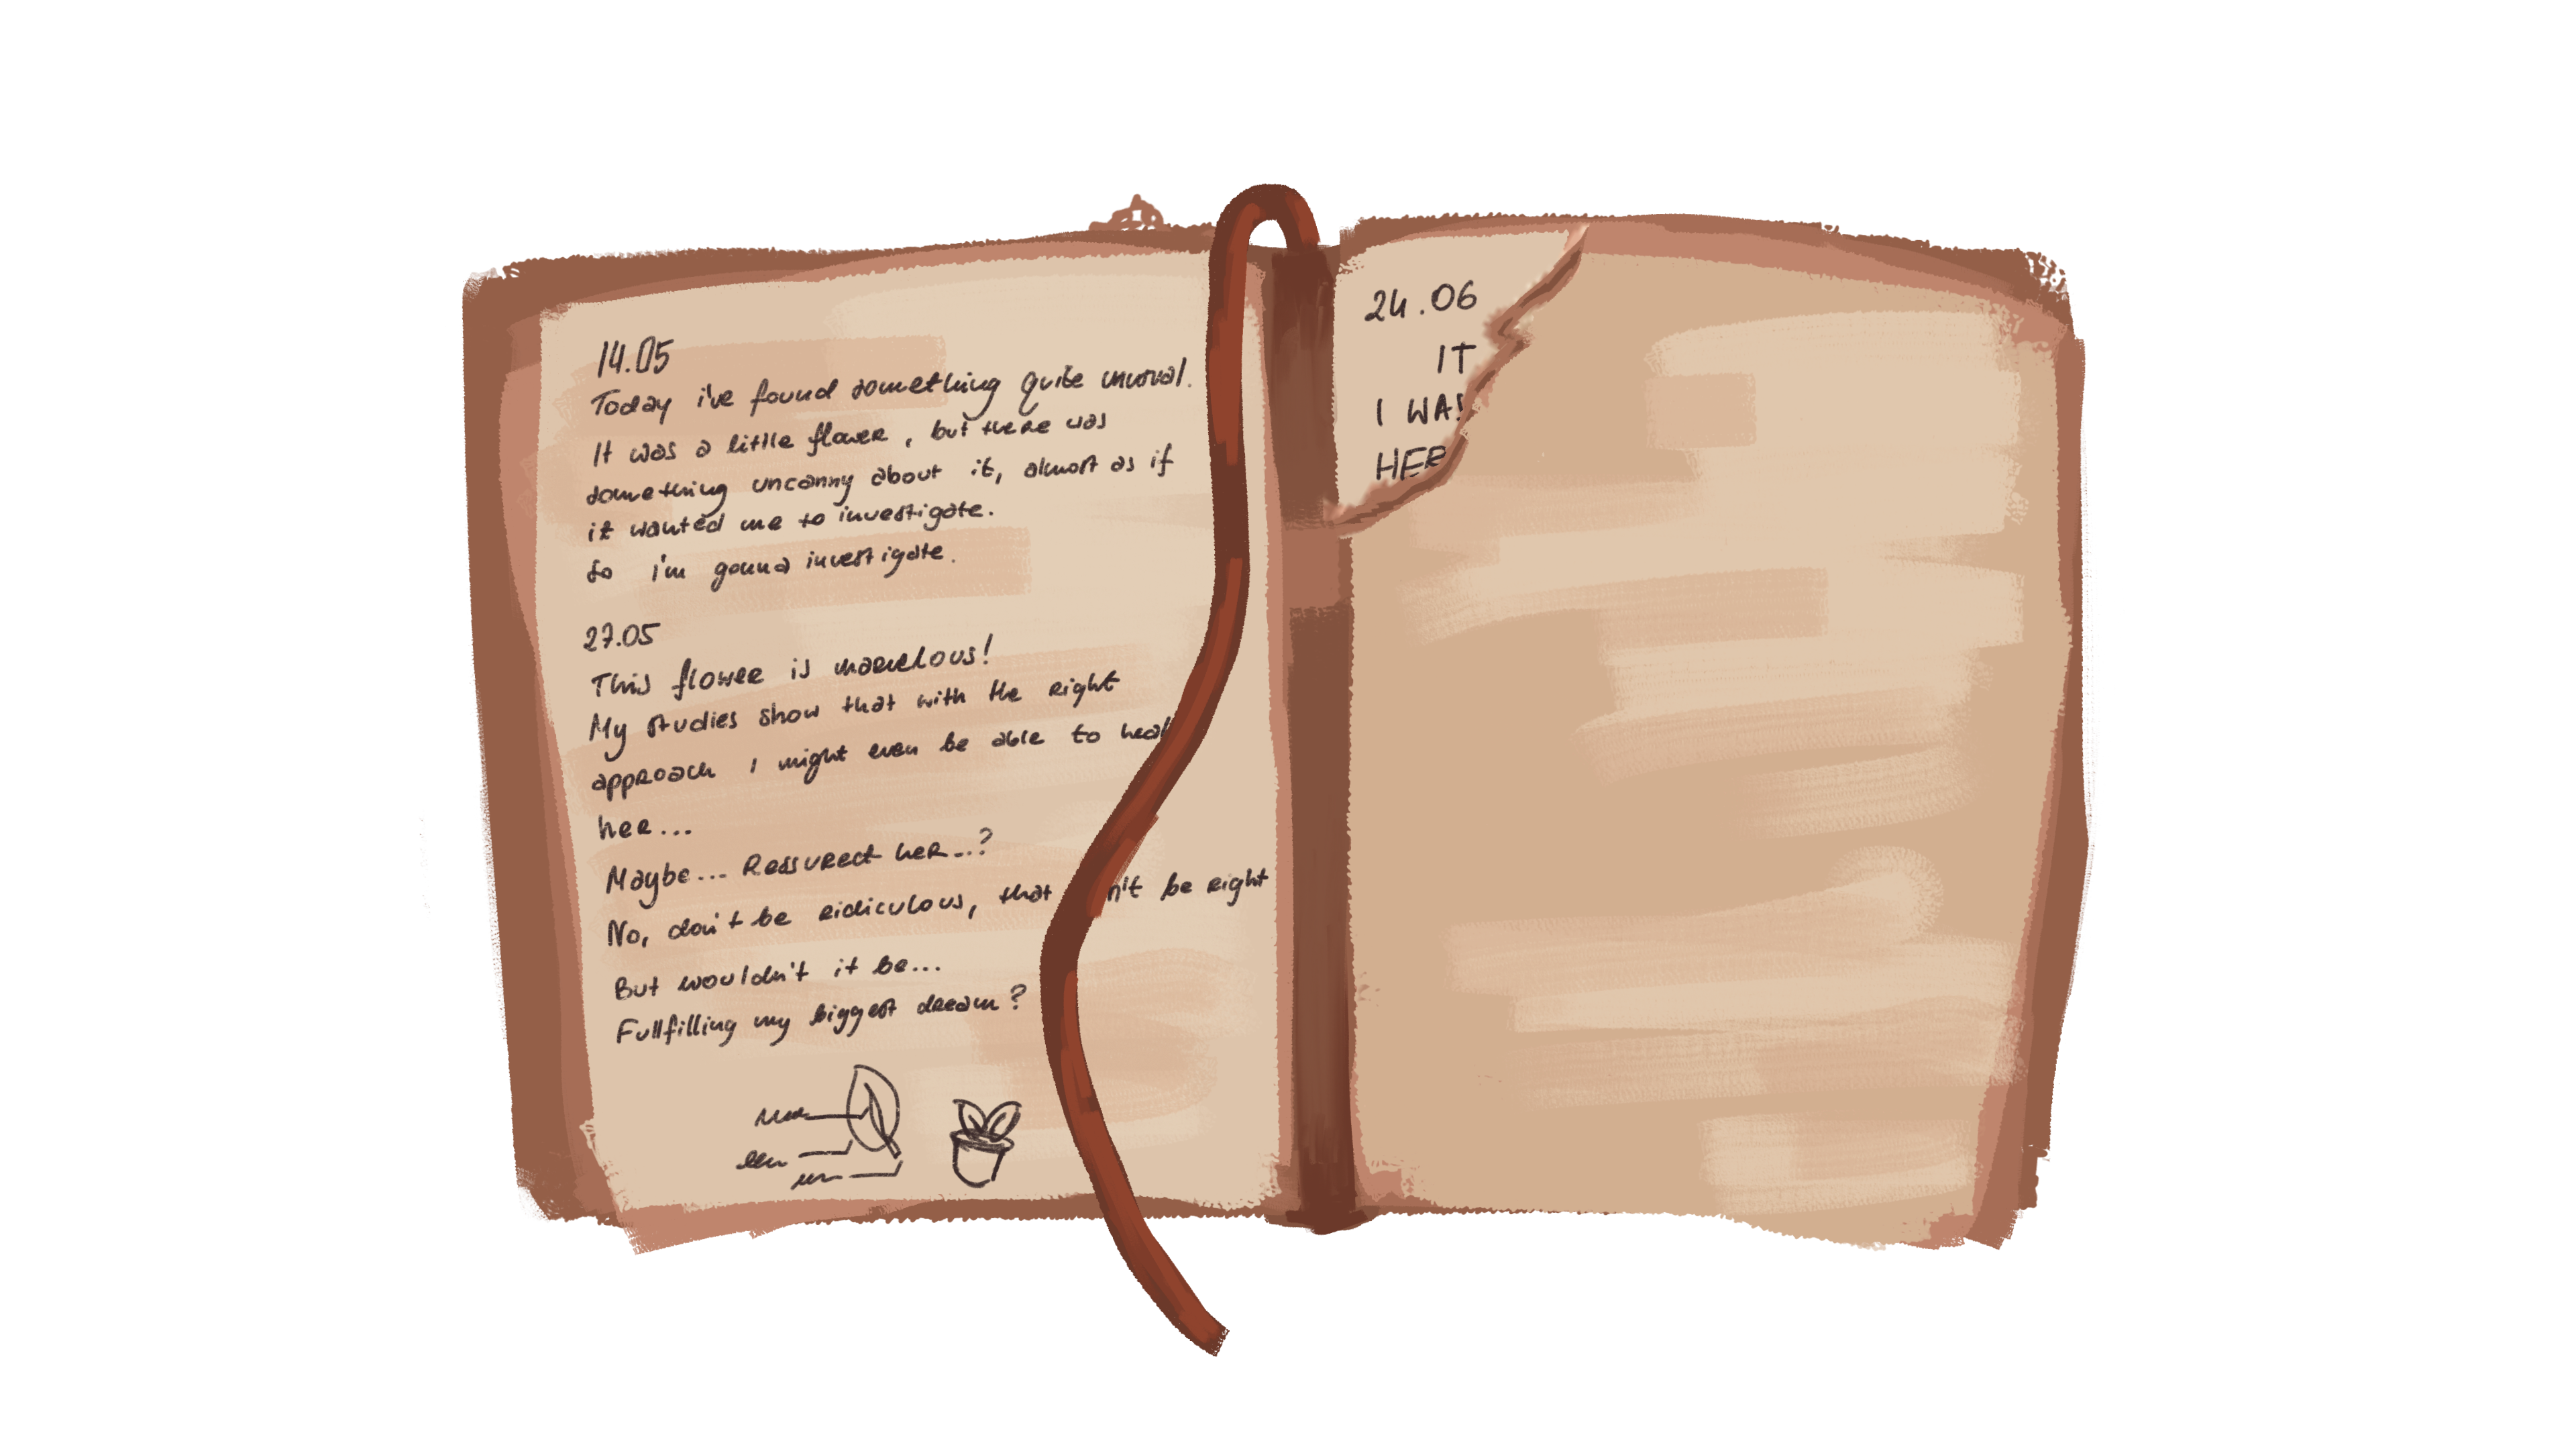 14.05
Today i've found something quite unusual.
It was a little flower, but there was
something uncanny about it, almost as if
it wanted me to investigate.
So i'm gonna investigate.
27.05
This flower is marvelous!
My studies show that with the right
approach I might even be able to heal
her...
Maybe... Ressurect her...?
No, don't be ridiculous, that be right
But wouldn't it be...
Fullfilling my biggest dream?
24.06
IT
I WAS
HER